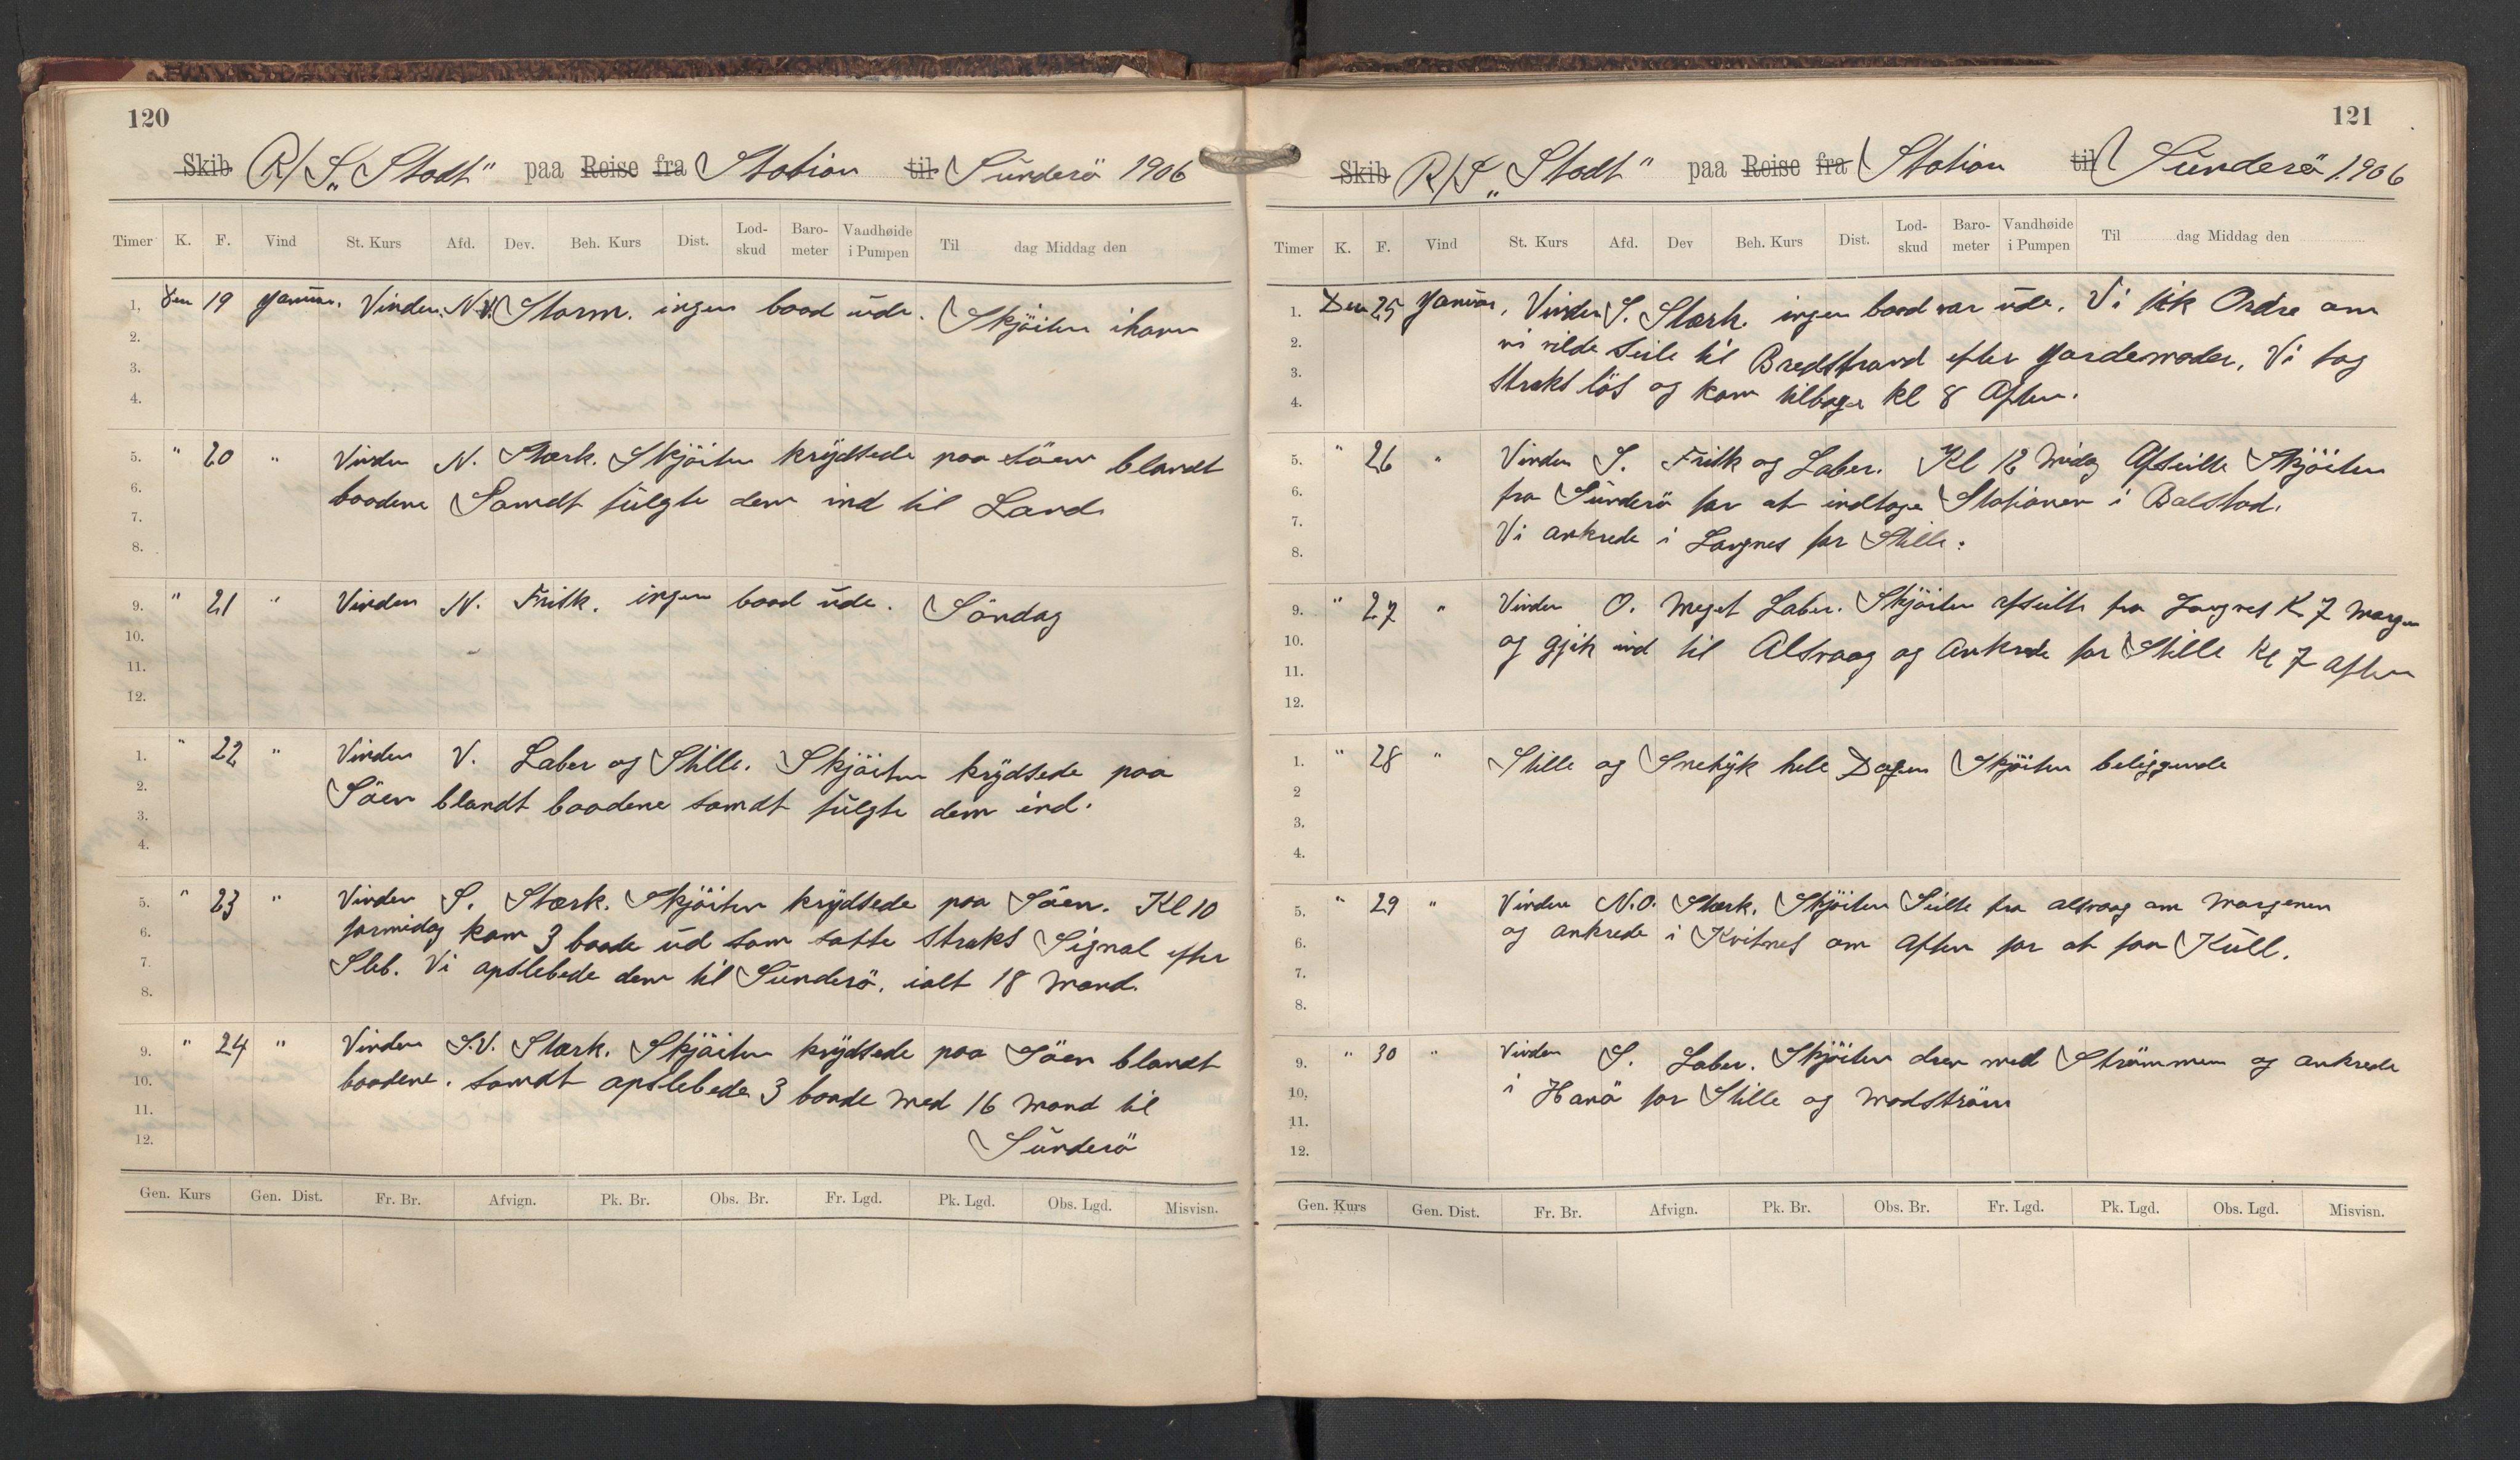 120
Skib R/S „Stadt" paa Reise fra Station til Sünderö 1906
Timer K. F. Vind St. Kurs Afd. Dev. Beh. Kurs Dist. Lod-skud Baro-meter Vandhøide i Pumpen Til dag Middag den
1. Den 19 Januar. Vinden. N.V. Storm. ingen baad üde. Skjöiten ihavn
2.
3.
4.
5. " 20 " Vinden N. Stærk. Skjöiten krÿdsede paa söen blandt
6. baadene Samdt fülgte dem ind til Land.
7.
8.
9. " 21 " Vinden N. Frisk. ingen baad üde. Söndag
10.
11.
12.
1. " 22 " Vinden V. Laber og Stille. Skjöiten krÿdsede paa
2. Söen blandt baadene samdt fülgte dem ind.
3.
4.
5. " 23 " Vinden S. Stærk. Skjöiten krÿdsede paa Söen. Kl 10
6. formidag kom 3 baade üd som satte straks Signal efter
7. Sleb. Vi opslebede dem til Sünderö. ialt 18 Mand.
8.
9. " 24 " Vinden S.V. Stærk. Skjöiten krÿdsede paa Söen blandt
10. baadene. samdt opslebede 3 baade med 16 Mand til
11.
12. Sünderö
Gen. Kurs Gen. Dist. Fr. Br. Afvign. Pk. Br. Obs. Br. Fr. Lgd. Pk. Lgd. Obs. Lgd. Misvisn.
121
Skib R/S „Stadt" paa Reise fra Station til Sünderö 1906
Timer K. F. Vind St. Kurs Afd. Dev Beh. Kurs Dist. Lod-skud Baro-meter Vandhøide i Pumpen Til dag Middag den
1. Den 25 Januar, Vinden S. Stærk. ingen baad var üde. Vi fik Ordre om
2. vi vilde seile til Bredstrand efter Jordemoder. Vi tog
3. straks lös og kom tilbage kl 8 Aften.
4.
5. " 26 " Vinden S. Frisk og Laber. Kl 12 Midag Afseilte Skjöiten
6. fra Sünderö for at indtage Stationen i Balstad.
7. Vi ankrede i Langnes for Stille.
8.
9. " 27 " Vinden O. meget Laber. Skjöiten afseilte fra Langnes K. 7 Morgen
10. og gjik ind til Alsvaag og Ankrede for Stille Kl 7 Aften
11.
12.
1. " 28 " Stille og Snetÿk hele Dagen Skjöiten beliggende
2
3.
4.
5. " 29 " Vinden N.O. Stærk. Skjöiten Seilte fra alsvaag om Morgenen
6. og ankrede i Kvitnes om Aften for at faa Küll.
7.
8.
9. " 30 " Vinden S. Laber. Skjöiten drev med Strömmen og ankrede
10. i Hanö for Stille og Modström
11.
12.
Gen. Kurs Gen. Dist. Fr. Br. Afvign. Pk. Br. Obs. Br. Fr. Lgd. Pk. Lgd. Obs. Lgd. Misvisn.